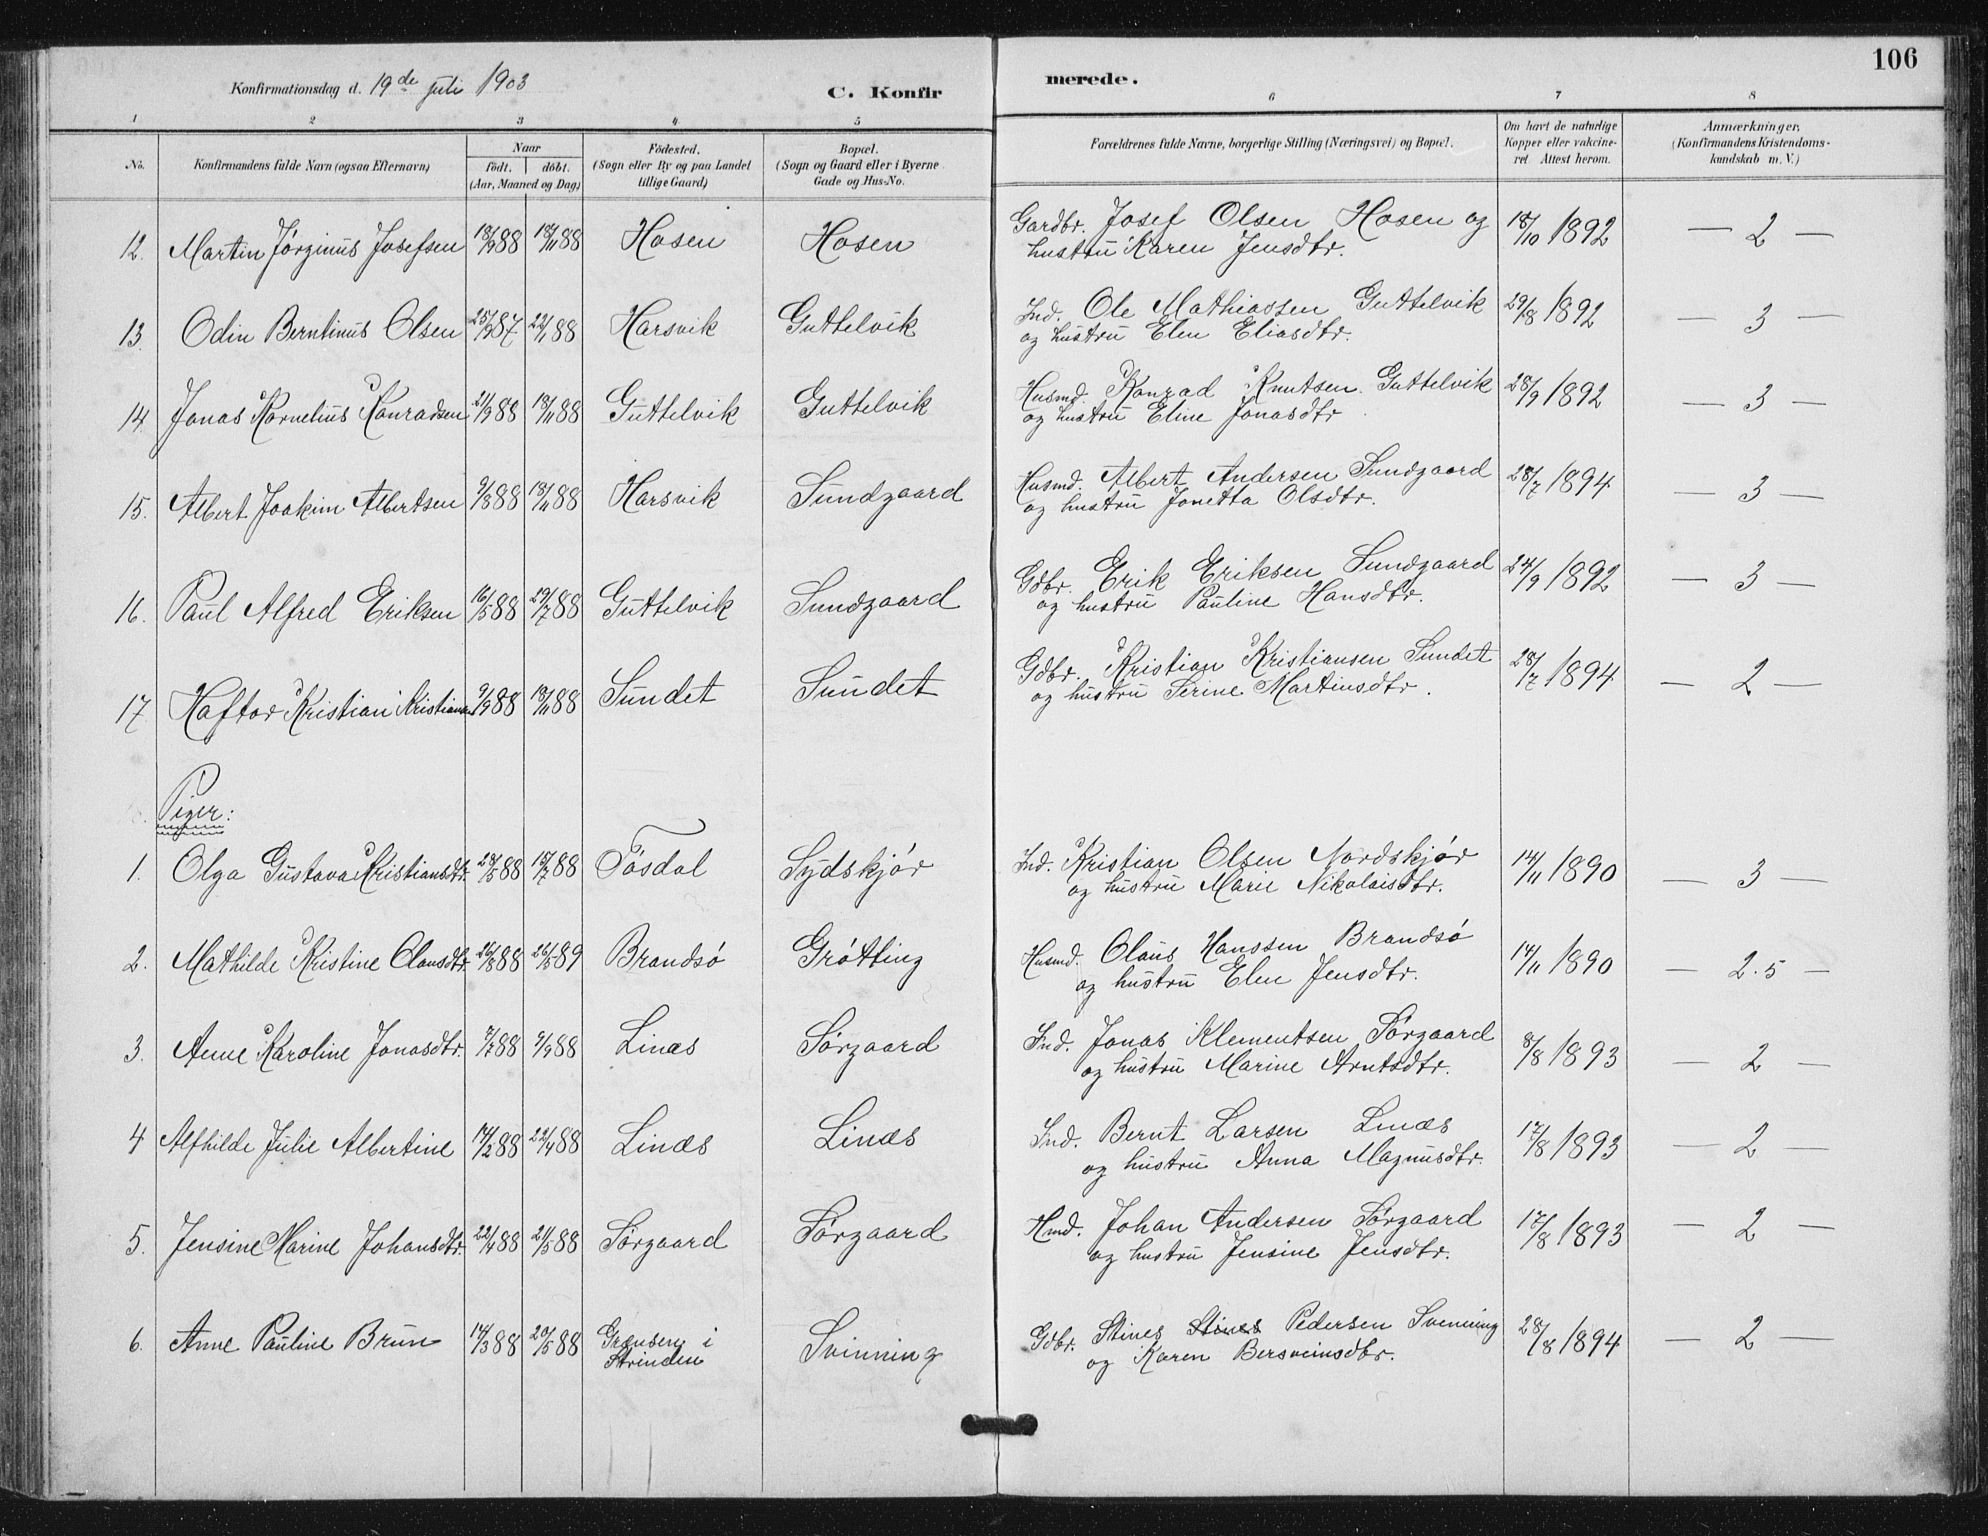 106
Konfirmationsdag d. 19de juli 1903
C. Konfirmerede.
1 2 3 4 5 6 7 8
No. Konfirmandens fulde Navn (ogsaa Efternavn)
Naar
født. døbt.
(Aar, Maaned og Dag)
Födested.
(Sogn eller By og paa Landet
tillige Gaard)
Bopæl.
(Sogn og Gaard eller i Byerne
Gade og Hus-No.
Forældrenes fulde Navne, borgerlige Stilling (Næringsvei) og Bopæl.
Om havt de naturlige
Kopper eller vakcine-
ret Attest herom.
Anmærkninger.
(Konfirmandens Kristendoms-
kundskab m. V.)
12. Martin Jørginus Josefsen 13/9 88 18/11 88 Hosen Hosen Gardbr. Josef Olsen Hosen og 18/10 1892 — 2 —
hustru Karen Jensdtr.
13. Odin Berntinus Olsen 25/9 87 22/1 88 Harsvik Guttelvik Ind. Ole Mathiassen Guttelvik 29/8 1892 — 3 —
og hustru Elen Eliasdtr.
14. Jonas Kornelius Konradsen 21/9 88 18/11 88 Guttelvik Guttelvik Husmd. Konrad Knutsen Guttelvik 28/9 1892 — 3 —
og hustru Eline Jonasdtr
15. Albert Joakim Albertsen 9/8 88 18/11 88 Harsvik Sundgaard Husmd. Albert Andersen Sundgaard 28/7 1894 — 3 —
og hustru Jonetta Olsdtr.
16. Paul Alfred Eriksen 16/5 88 29/7 88 Guttelvik Sundgaard Gdbr. Erik Eriksen Sundgaard 24/9 1892 — 3 —
og hustru Pauline Hansdtr.
17 Haftor Kristian Kristians 9/9 88 18/11 88 Sundet Sundet Gdbr. Kristian Kristiansen Sundet 28/7 1894 — 2 —
og hustru Serine Martinsdtr.
Piger:
1. Olga Gustava Kristiansdtr. 28/5 88 15/7 88 Tösdal Sydskjör Ind. Kristian Olsen Nordskjör 14/11 1890 — 3 —
og hustru Marie Nikolaisdtr.
2. Mathilde Kristine Olausdtr. 26/8 88 26/5 89 Brandsö Grötting Husmd. Olaus Hanssen Brandsö 14/11 1890 — 2.5 —
og hustru Elen Jensdtr.
3. Anne Karoline Jonasdtr. 7/7 88 9/9 88 Linæs Sörgaard Ind. Jonas Klementsen Sörgaard 8/8 1893 — 2 —
og hustru Marine Arntsdtr.
4 Alfhilde Julie Albertine 14/2 88 22/4 88 Linæs Linæs Ind. Bernt Larsen Linæs 17/8 1893 — 2 —
og hustru Anna Magnusdtr.
5. Jensine Marine Johansdtr. 22/4 88 21/5 88 Sörgaard Sörgaard Hmd. Johan Andersen Sörgaard 17/8 1893 — 2 —
og hustru Jensine Jensdtr.
6. Anne Pauline Brun 14/3 88 20/5 88 Grensen i Svinning Gdbr. Stines Stines Pedersen Svenning 28/8 1894 — 2 —
Strinden og Karen Bersveinsdtr.